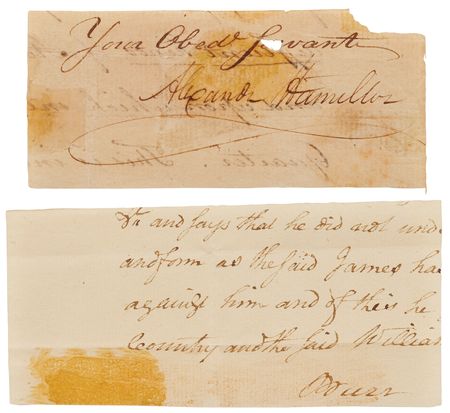 Your Obedt Servant
Alexandr Hamilton
Quarter. This
&c and says that he did not und
and form as the said James ha
against him and of this he
Country and the said William
A Burr